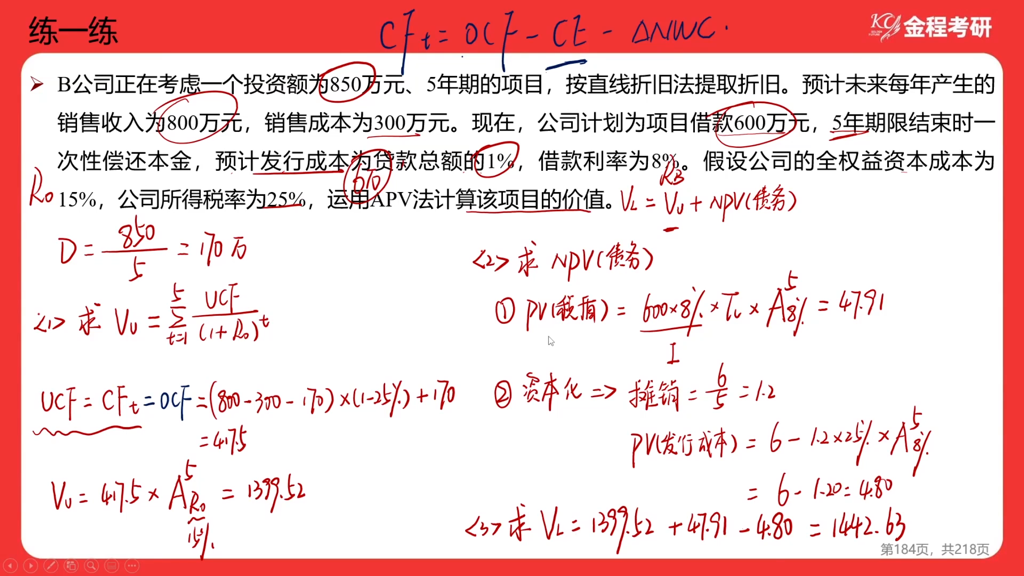 练一练
CFt = OCF - CE - ΔNWC.
金程考研
B公司正在考虑一个投资额为850万元、5年期的项目，按直线折旧法提取折旧。预计未来每年产生的
销售收入为800万元，销售成本为300万元。现在，公司计划为项目借款600万元，5年期限结束时一
次性偿还本金，预计发行成本为贷款总额的1%，借款利率为8%。假设公司的全权益资本成本为
R₀
RB
15%，公司所得税率为25%，运用APV法计算该项目的价值。
VL = VU + NPV(债务)
D = 850/5 = 170万
<1> 求 VU = 5∑t=1 UCF/(1+R₀)^t
UCF = CFt = OCF = (800-300-170)×(1-25%)+170
= 417.5
VU = 417.5 × A⁵R₀ = 1399.52
15%
<2> 求 NPV(债务)
① PV(税盾) = 600×8% × Tc × A⁵8% = 47.91
I
② 资本化 => 摊销 = 6/5 = 1.2
PV(发行成本) = 6 - 1.2×25% × A⁵8%
= 6 - 1.20 = 4.80
<3> 求 VL = 1399.52 + 47.91 - 4.80 = 1442.63
第184页，共218页